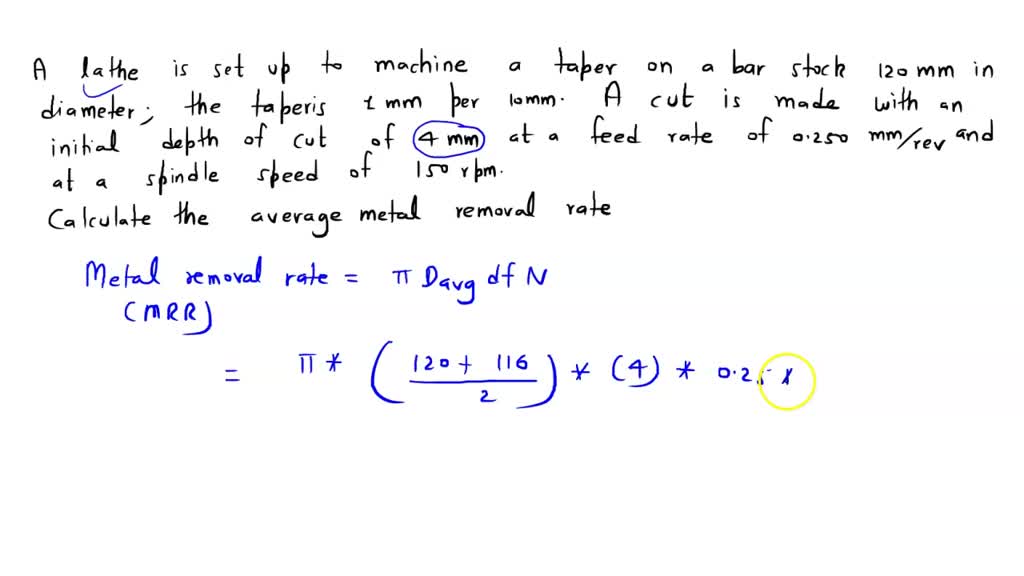 A lathe is set up to machine a taper on a bar stock 120 mm in
diameter; the taper is 1 mm per 10mm. A cut is made with an
initial depth of cut of 4 mm at a feed rate of 0.250 mm/rev and
at a spindle speed of 150 rpm.
Calculate the average metal removal rate
Metal removal rate = π Davg df N
(MRR)
= π * (120 + 116 / 2) * (4) * 0.25 *